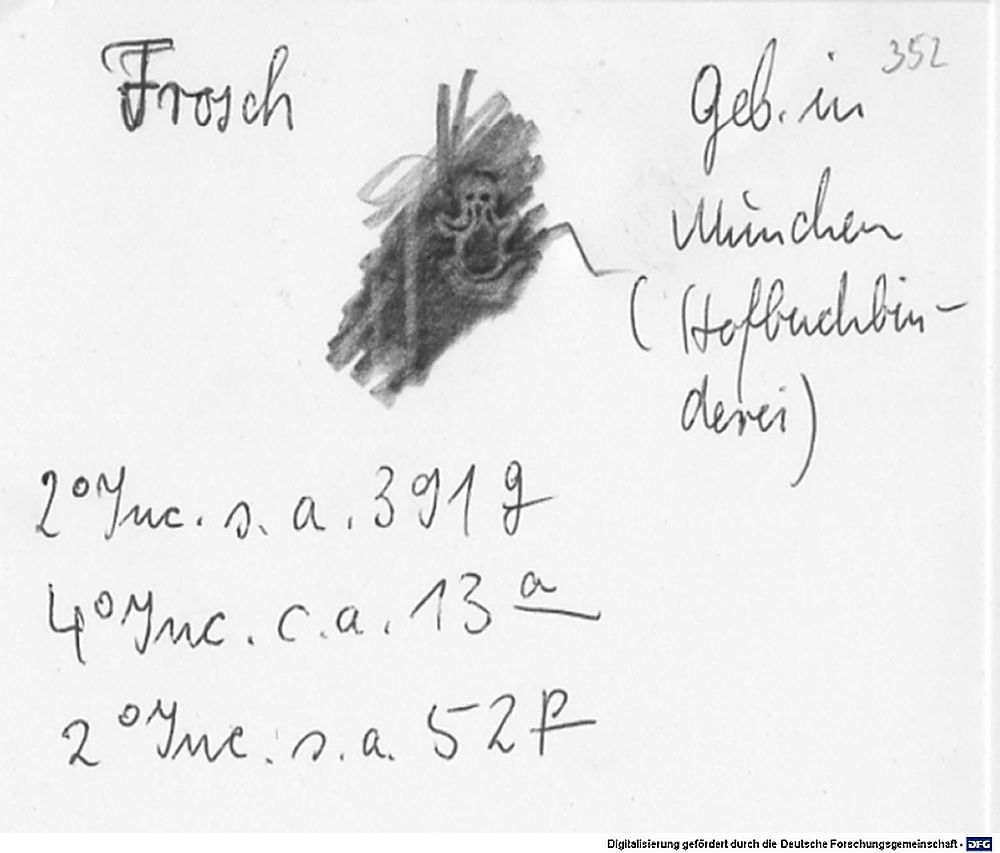 352
Frosch
Geb. in
München
(Hofbuchbin-
derei)
2° Inc. s. a. 391 g
4° Inc. c. a. 13 a
2° Inc. s. a. 52 p
Digitalisierung gefördert durch die Deutsche Forschungsgemeinschaft - DFG